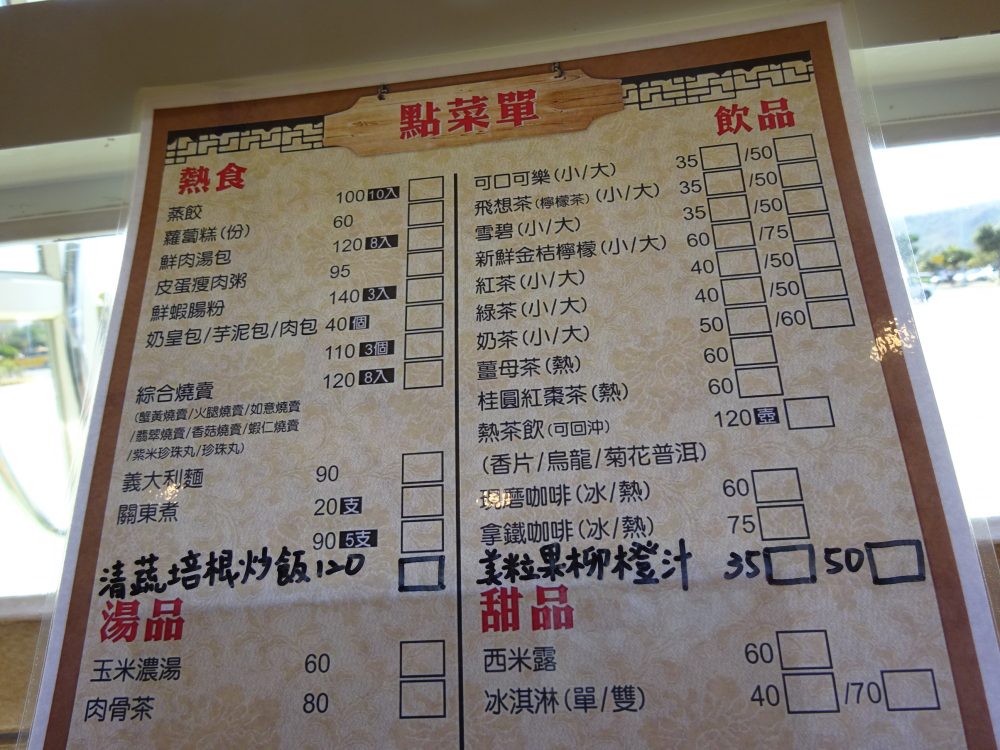 點菜單
熱食
蒸餃 100 10入
蘿蔔糕(份) 60
鮮肉湯包 120 8入
皮蛋瘦肉粥 95
鮮蝦腸粉 140 3入
奶皇包/芋泥包/肉包 40 個
110 3個
綜合燒賣 120 8入
(蟹黃燒賣/火腿燒賣/如意燒賣
/翡翠燒賣/香菇燒賣/蝦仁燒賣
/紫米珍珠丸/珍珠丸)
義大利麵 90
關東煮 20 支
90 5支
清蔬培根炒飯120
湯品
玉米濃湯 60
肉骨茶 80
飲品
可口可樂(小/大) 35 /50
飛想茶(檸檬茶)(小/大) 35 /50
雪碧(小/大) 35 /50
新鮮金桔檸檬(小/大) 60 /75
紅茶(小/大) 40 /50
綠茶(小/大) 40 /50
奶茶(小/大) 50 /60
薑母茶(熱) 60
桂圓紅棗茶(熱) 60
熱茶飲(可回沖) 120 壺
(香片/烏龍/菊花普洱)
現磨咖啡(冰/熱) 60
拿鐵咖啡(冰/熱) 75
美粒果柳橙汁 35 50
甜品
西米露 60
冰淇淋(單/雙) 40 /70